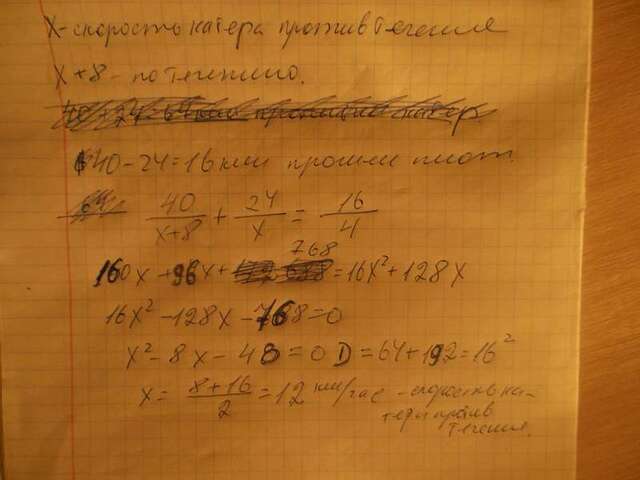 x - скорость катера против течения
x + 8 - по течению.
40 - 24 = 16 км прошел плот.
40/(x+8) + 24/x = 16/4
160x + 96x + 768 = 16x² + 128x
16x² - 128x - 768 = 0
x² - 8x - 48 = 0 D = 64 + 192 = 16²
x = (8+16)/2 = 12 км/час - скорость ка-
тера против
течения.